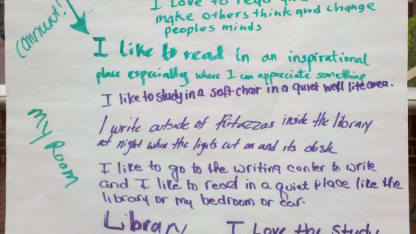 I Love to read
make others think and change
peoples minds
(comment!)
I like to read in an inspirational
place especially where I can appreciate something
I like to study in a soft chair in a quiet well lite area.
My Room
I write outside of inside the library
at night when the lights cut on and its
I like to go to the writing center to write
and I like to read in a quiet place like the
library or my bedroom or car.
Library I Love the Study